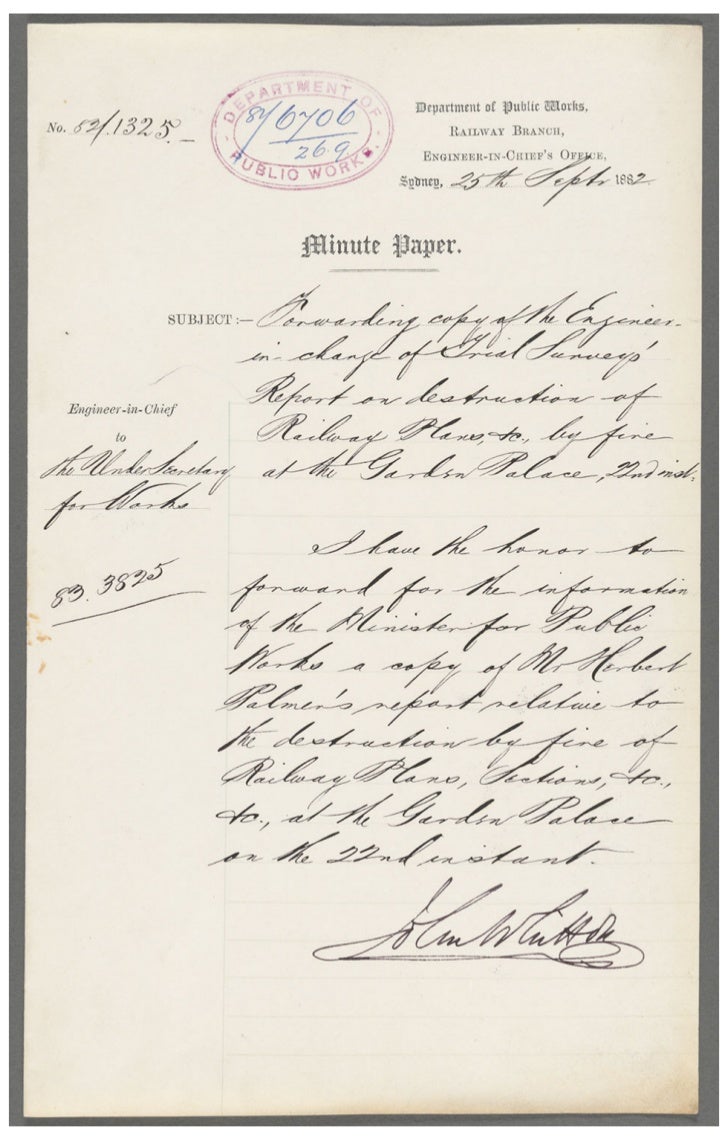 No. 82/1325.
DEPARTMENT OF
82/6706
26.9
PUBLIC WORKS.
Department of Public Works,
RAILWAY BRANCH,
ENGINEER-IN-CHIEF'S OFFICE,
Sydney, 25th Septr 1882.
Minute Paper.
SUBJECT:— Forwarding copy of the Engineer-
in-charge of Trial Surveys'
Report on destruction of
Railway Plans, &c., by fire
at the Garden Palace, 22nd inst.
Engineer-in-Chief
to
the Under Secretary
for Works
83.3825
I have the honor to
forward for the information
of the Minister for Public
Works a copy of Mr Herbert
Palmer's report relative to
the destruction by fire of
Railway Plans, Sections, &c.,
&c., at the Garden Palace
on the 22nd instant.
John Whitton